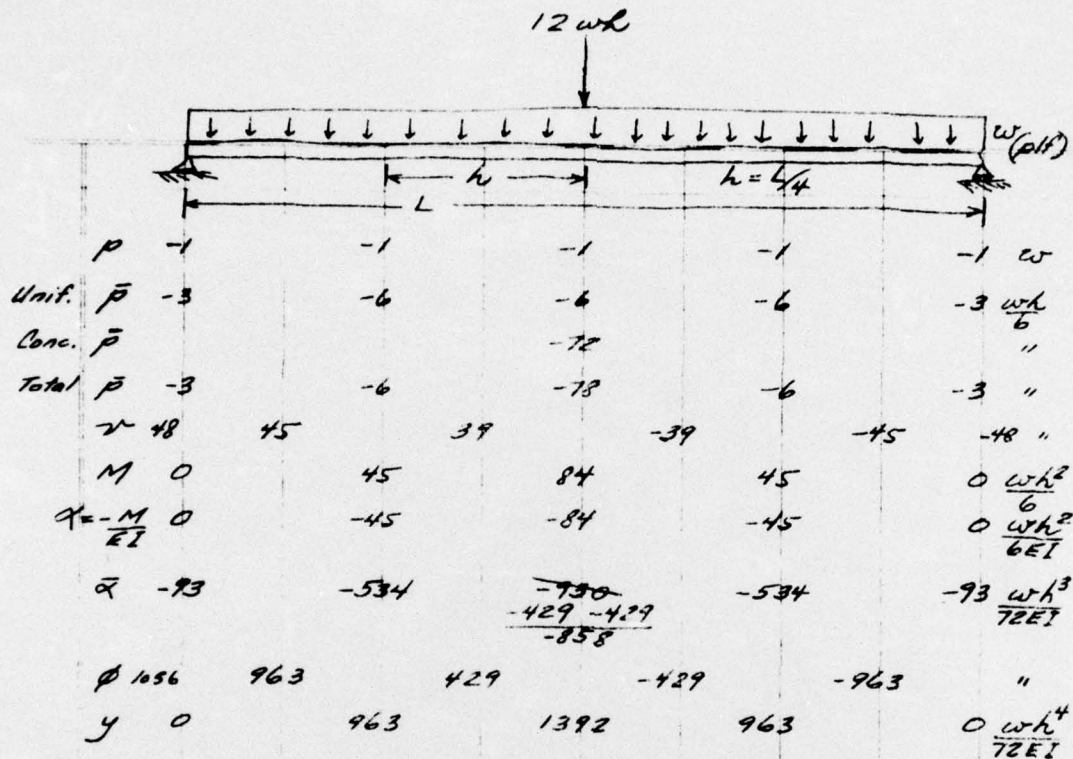 12 wh
w
(plf)
h
h = L/4
L
p -1 -1 -1 -1 -1 w
Unif. p̄ -3 -6 -6 -6 -3 wh/6
Conc. p̄ -72 "
Total p̄ -3 -6 -78 -6 -3 "
v 48 45 39 -39 -45 -48 "
M 0 45 84 45 0 wh²/6
α = -M/EI 0 -45 -84 -45 0 wh²/6EI
ᾱ -93 -534 -930 -534 -93 wh³/72EI
-429 -429
-858
ϕ 1056 963 429 -429 -963 "
y 0 963 1392 963 0 wh⁴/72EI